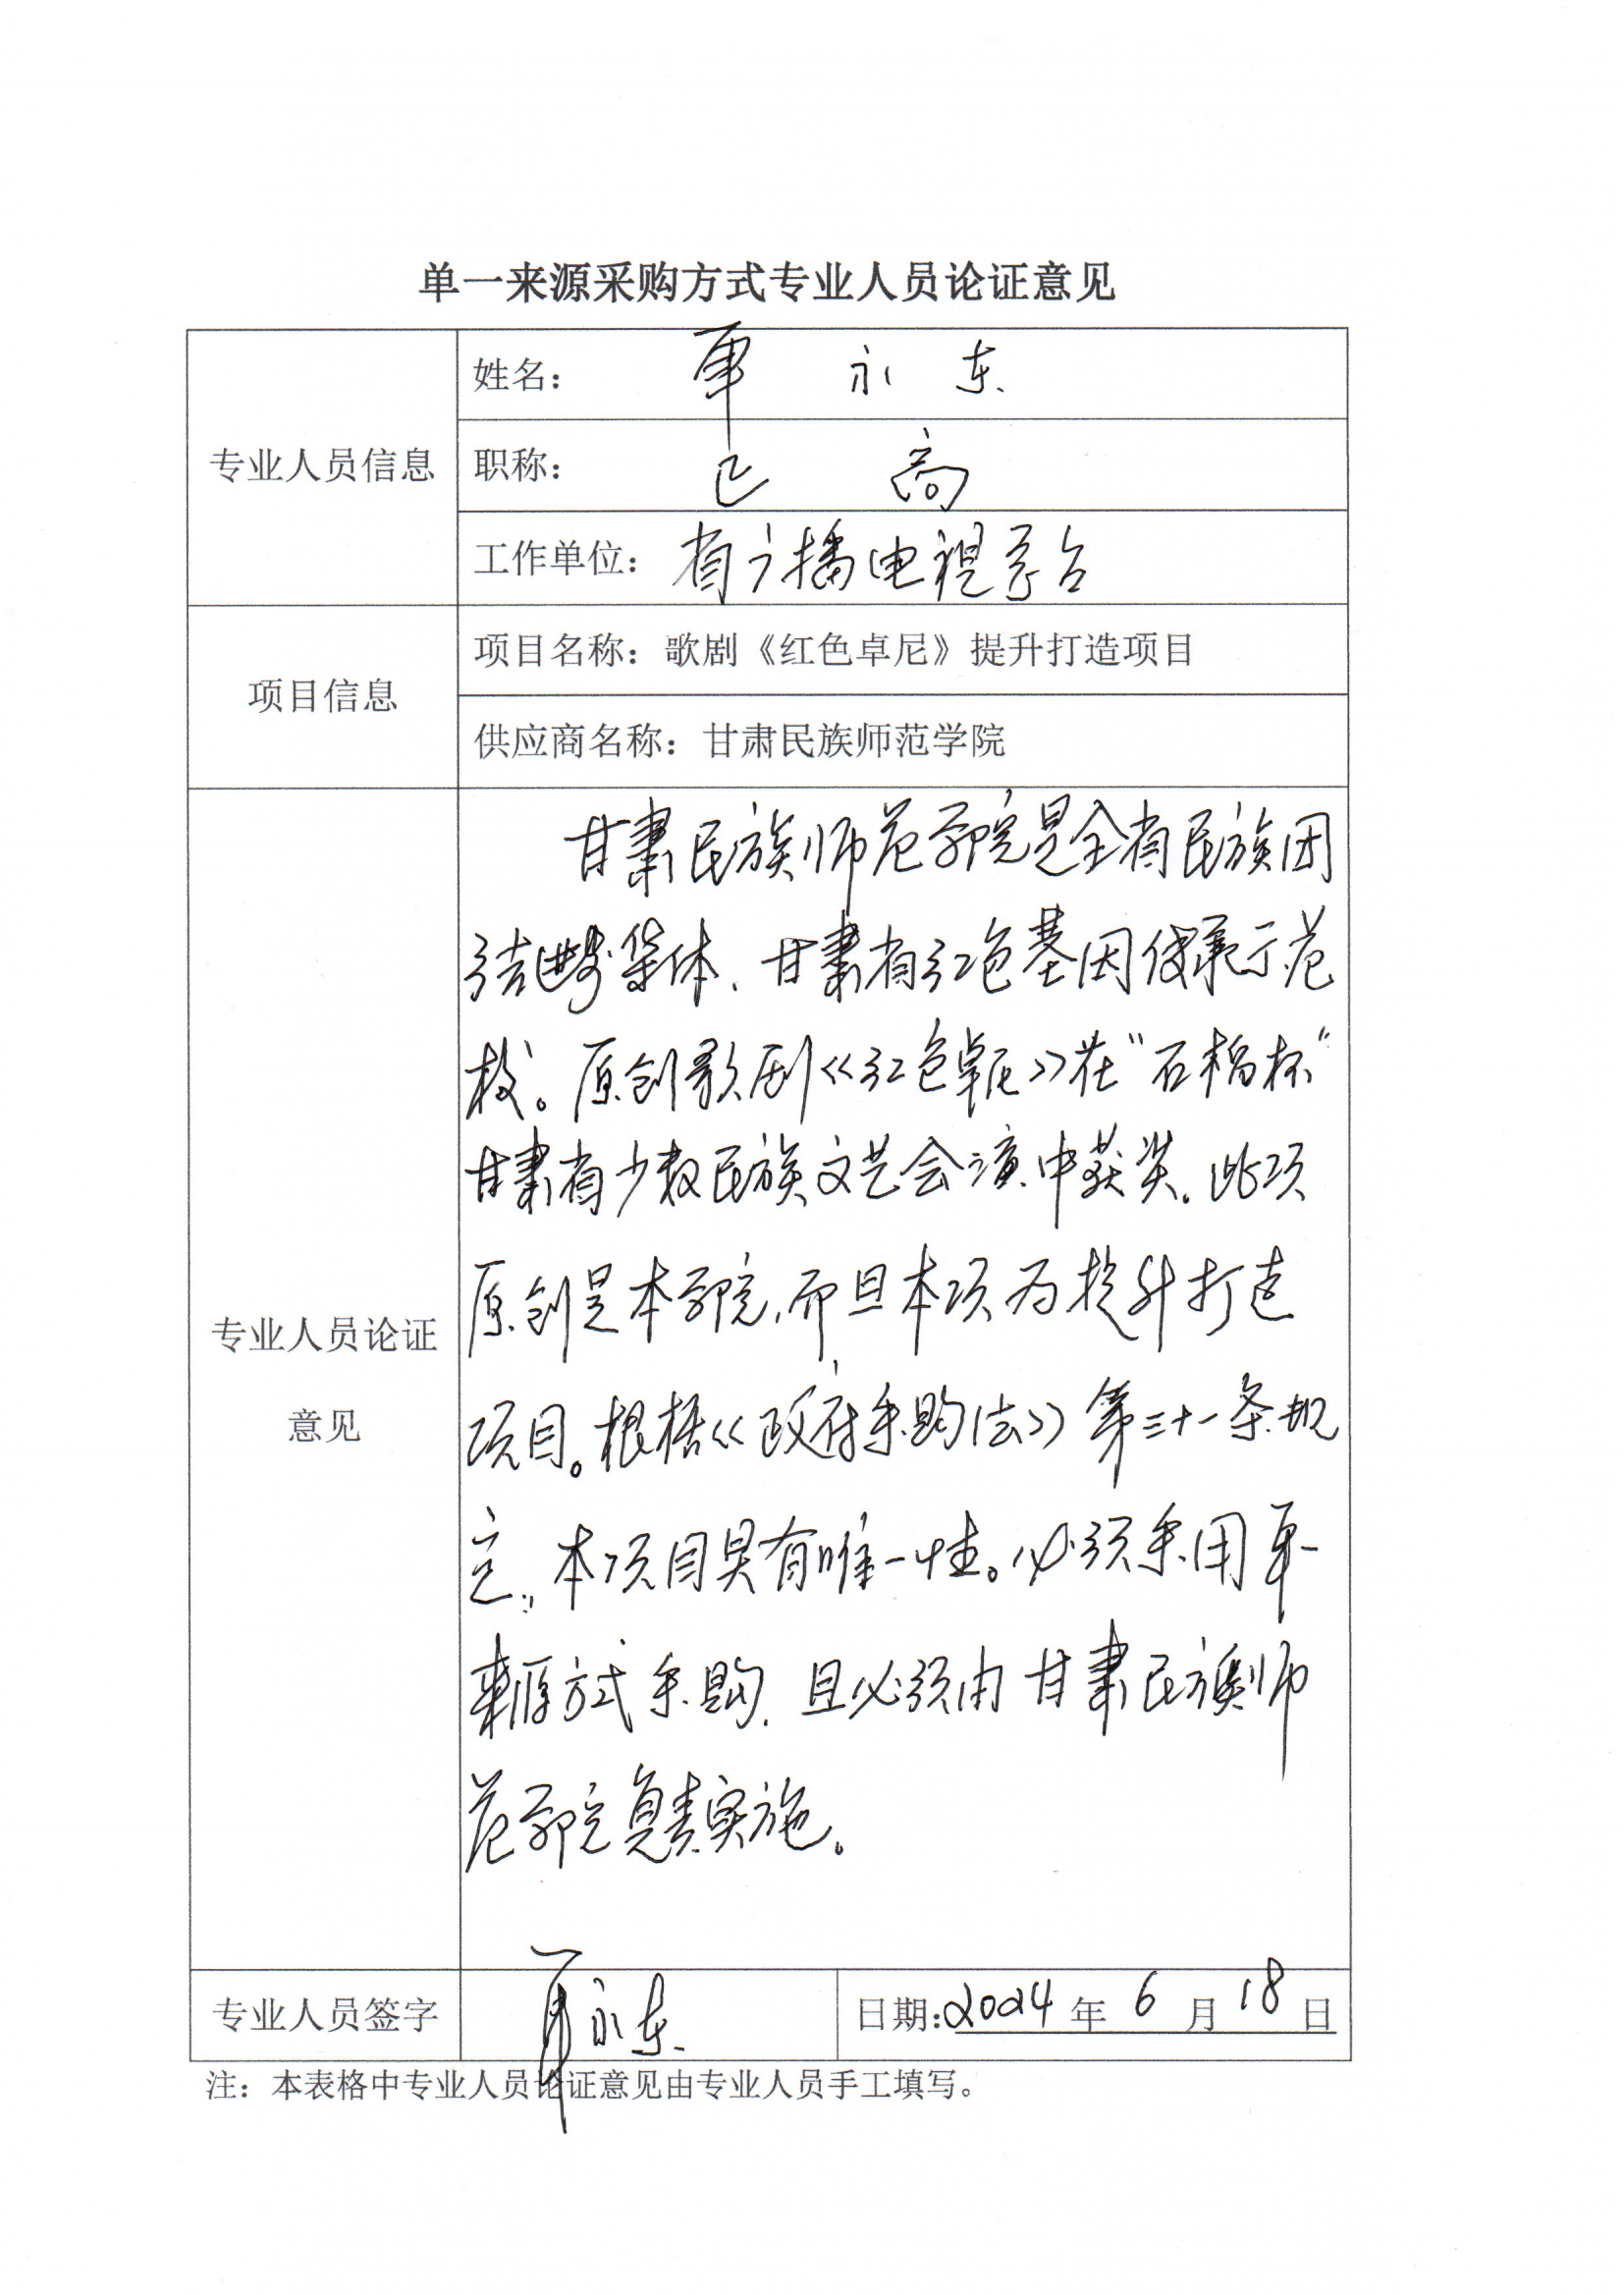 单一来源采购方式专业人员论证意见
专业人员信息
姓名： 永东
职称： 正高
工作单位：省广播电视总台
项目信息
项目名称：歌剧《红色卓尼》提升打造项目
供应商名称：甘肃民族师范学院
专业人员论证意见
甘肃民族师范学院是全省民族团
结进步集体、甘肃省红色基因传承示范
校。原创歌剧《红色卓尼》在“石榴杯”
甘肃省少数民族文艺会演中获奖。此项
原创是本学院，而且本项为提升打造
项目。根据《政府采购法》第三十一条规
定，本项目具有唯一性。必须采用单一
来源方式采购，且必须由甘肃民族师
范学院负责实施。
专业人员签字
永东
日期：2024年6月18日
注：本表格中专业人员论证意见由专业人员手工填写。